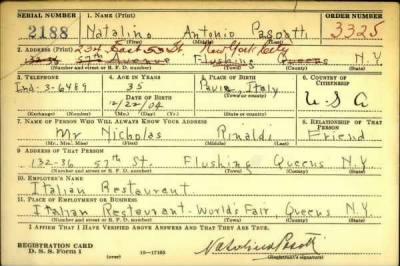 SERIAL NUMBER 1. NAME (Print) ORDER NUMBER
2188 Natalino Antonio Pasotti 3325
(First) (Middle) (Last)
2. ADDRESS (Print) 234 East 53 St New York City
132-36 57th Avenue Flushing Queens N.Y.
(Number and street or R. F. D. number) (Town) (County) (State)
3. TELEPHONE 4. AGE IN YEARS 5. PLACE OF BIRTH 6. COUNTRY OF CITIZENSHIP
Ind-3-6489 35 Pavia, Italy
DATE OF BIRTH (Town or county)
12/22/04 U.S.A
(Exchange) (Number) (Mo.) (Day) (Yr.) (State or country)
7. NAME OF PERSON WHO WILL ALWAYS KNOW YOUR ADDRESS 8. RELATIONSHIP OF THAT PERSON
Mr Nicholas Rinaldi Friend
(Mr., Mrs., Miss) (First) (Middle) (Last)
9. ADDRESS OF THAT PERSON
132-36 57th St. Flushing Queens N.Y.
(Number and street or R. F. D. number) (Town) (County) (State)
10. EMPLOYER'S NAME
Italian Restaurant
11. PLACE OF EMPLOYMENT OR BUSINESS
Italian Restaurant-World's Fair, Queens N.Y.
(Number and street or R. F. D. number) (Town) (County) (State)
I AFFIRM THAT I HAVE VERIFIED ABOVE ANSWERS AND THAT THEY ARE TRUE.
REGISTRATION CARD
D. S. S. Form 1 (over) 16-17105 (Registrant's signature)